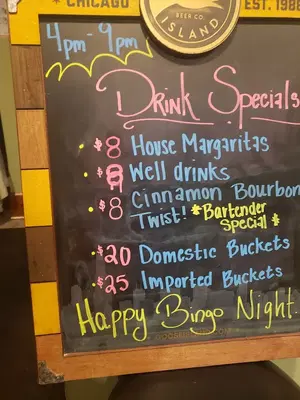 CHICAGO
EST. 1988
BEER CO.
ISLAND
4pm - 9pm
Drink Specials
• $8 House Margaritas
• $8 Well drinks
• $8 Cinnamon Bourbon
Twist! *Bartender
Special*
• $20 Domestic Buckets
• $25 Imported Buckets
Happy Bingo Night.